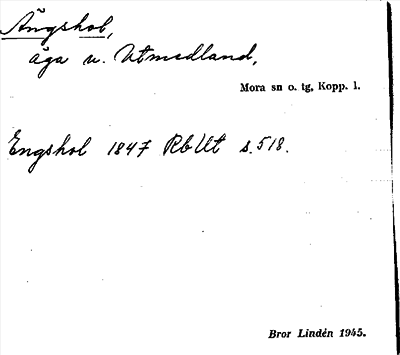 Ängshol,
äga u. Utmedland,
Mora sn o. tg, Kopp. l.
Engshol 1847 Rb Ut s. 518.
Bror Lindén 1945.